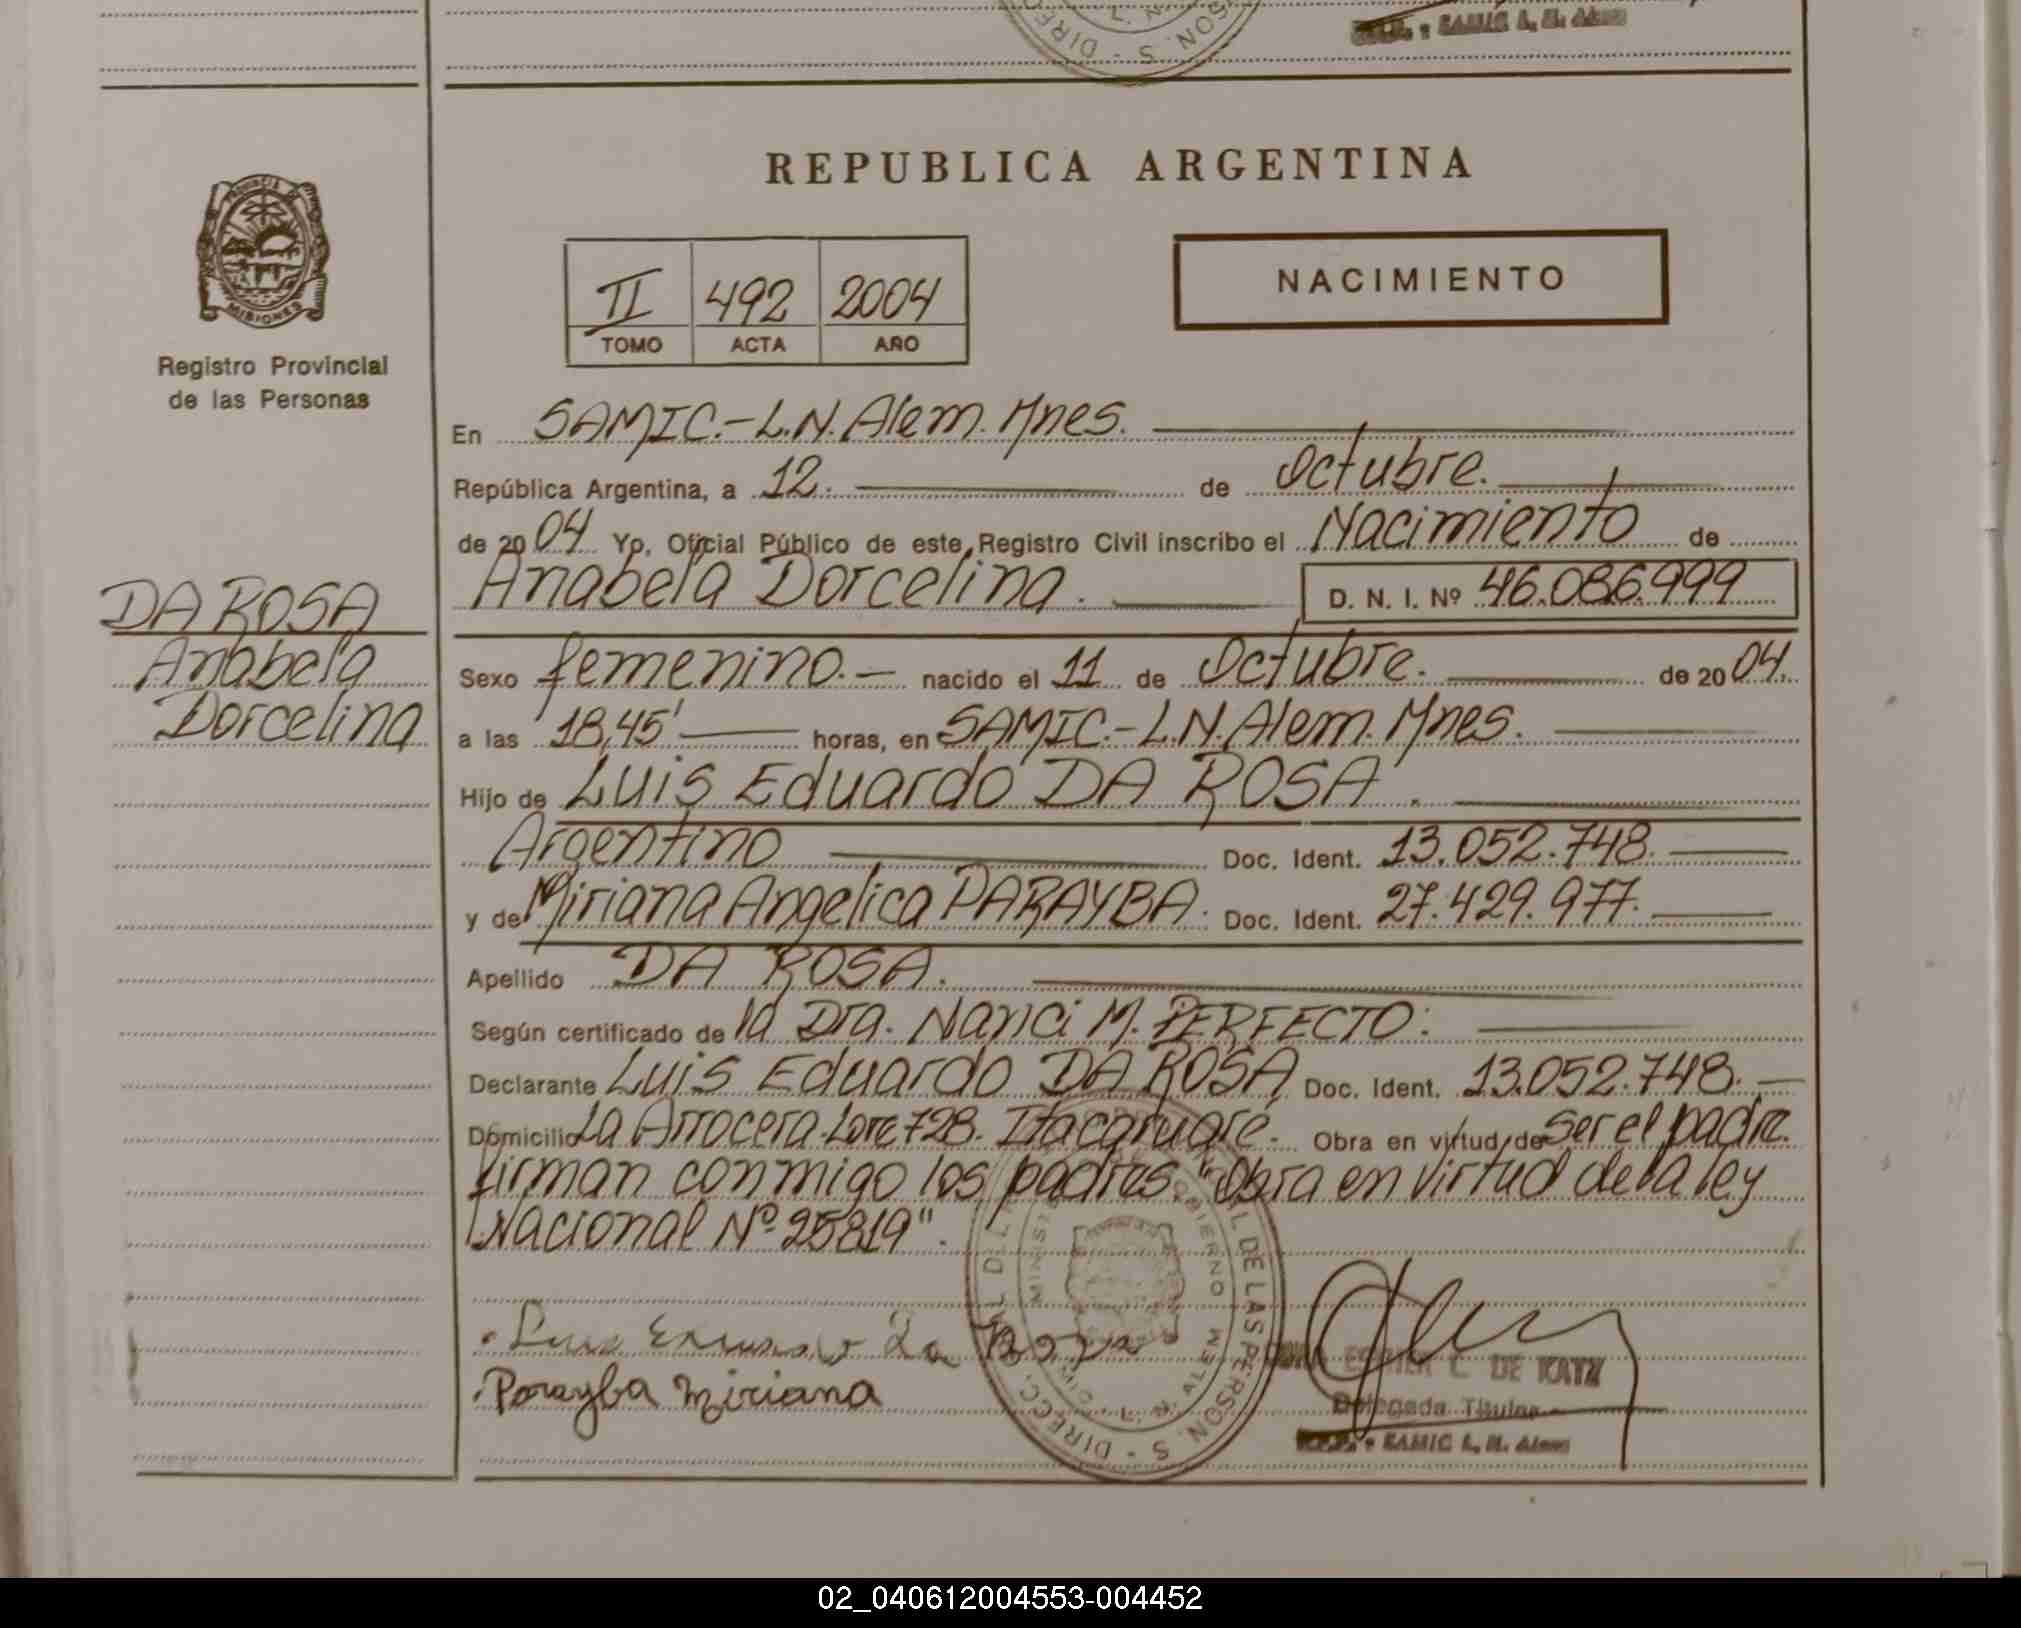 S.A.M.I.C. L. N. Alem
REPUBLICA ARGENTINA
NACIMIENTO
II 492 2004
TOMO ACTA AÑO
PROVINCIA DE MISIONES
Registro Provincial
de las Personas
En SAMIC.-L.N.Alem.Mnes.
República Argentina, a 12. de Octubre.
de 2004 Yo, Oficial Público de este Registro Civil inscribo el Nacimiento de
Anabela Dorcelina. D. N. I. Nº 46.086.999
DA ROSA
Anabela
Dorcelina
Sexo femenino.- nacido el 11 de Octubre. de 2004.
a las 18,45' horas, en SAMIC.-L.N.Alem.Mnes.
Hijo de Luis Eduardo DA ROSA.
Argentino Doc. Ident. 13.052.748.
y de Miriana Angelica PARAYBA. Doc. Ident. 27.429.977.
Apellido DA ROSA.
Según certificado de la Dra. Nanci M. PERFECTO.
Declarante Luis Eduardo DA ROSA Doc. Ident. 13.052.748.-
Domicilio La Arrocera.Lote 728. Itacaruaré. Obra en virtud de Ser el padre.
firman conmigo los padres. "Obra en virtud de la ley
Nacional Nº 25819".
Parayba Miriana
DIRECC. GRAL DEL REG. PROVINCIAL DE LAS PERSON. S
MINISTERIO DE GOBIERNO
L. N. ALEM
ESTHER C. DE KATZ
Delegada Titular
R.P.P. - SAMIC L. N. Alem
02_040612004553-004452